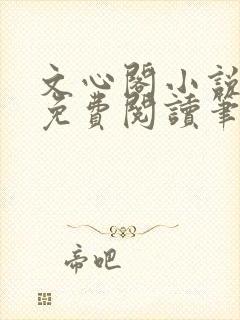 文心閣小説
免費閱讀筆
帝吧